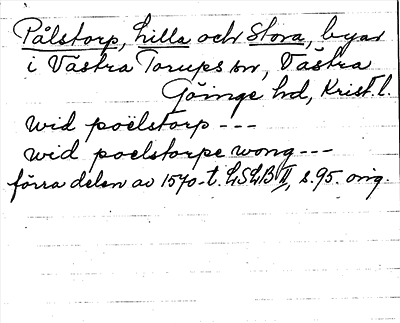 Pålstorp, Lilla och Stora, byar
i Västra Torups sn, Västra
Göinge hd, Krist. l.
wid poëlstorp ---
wid poelstorpe wong ---
förra delen av 1570-t. LSLB II, s. 95. orig.